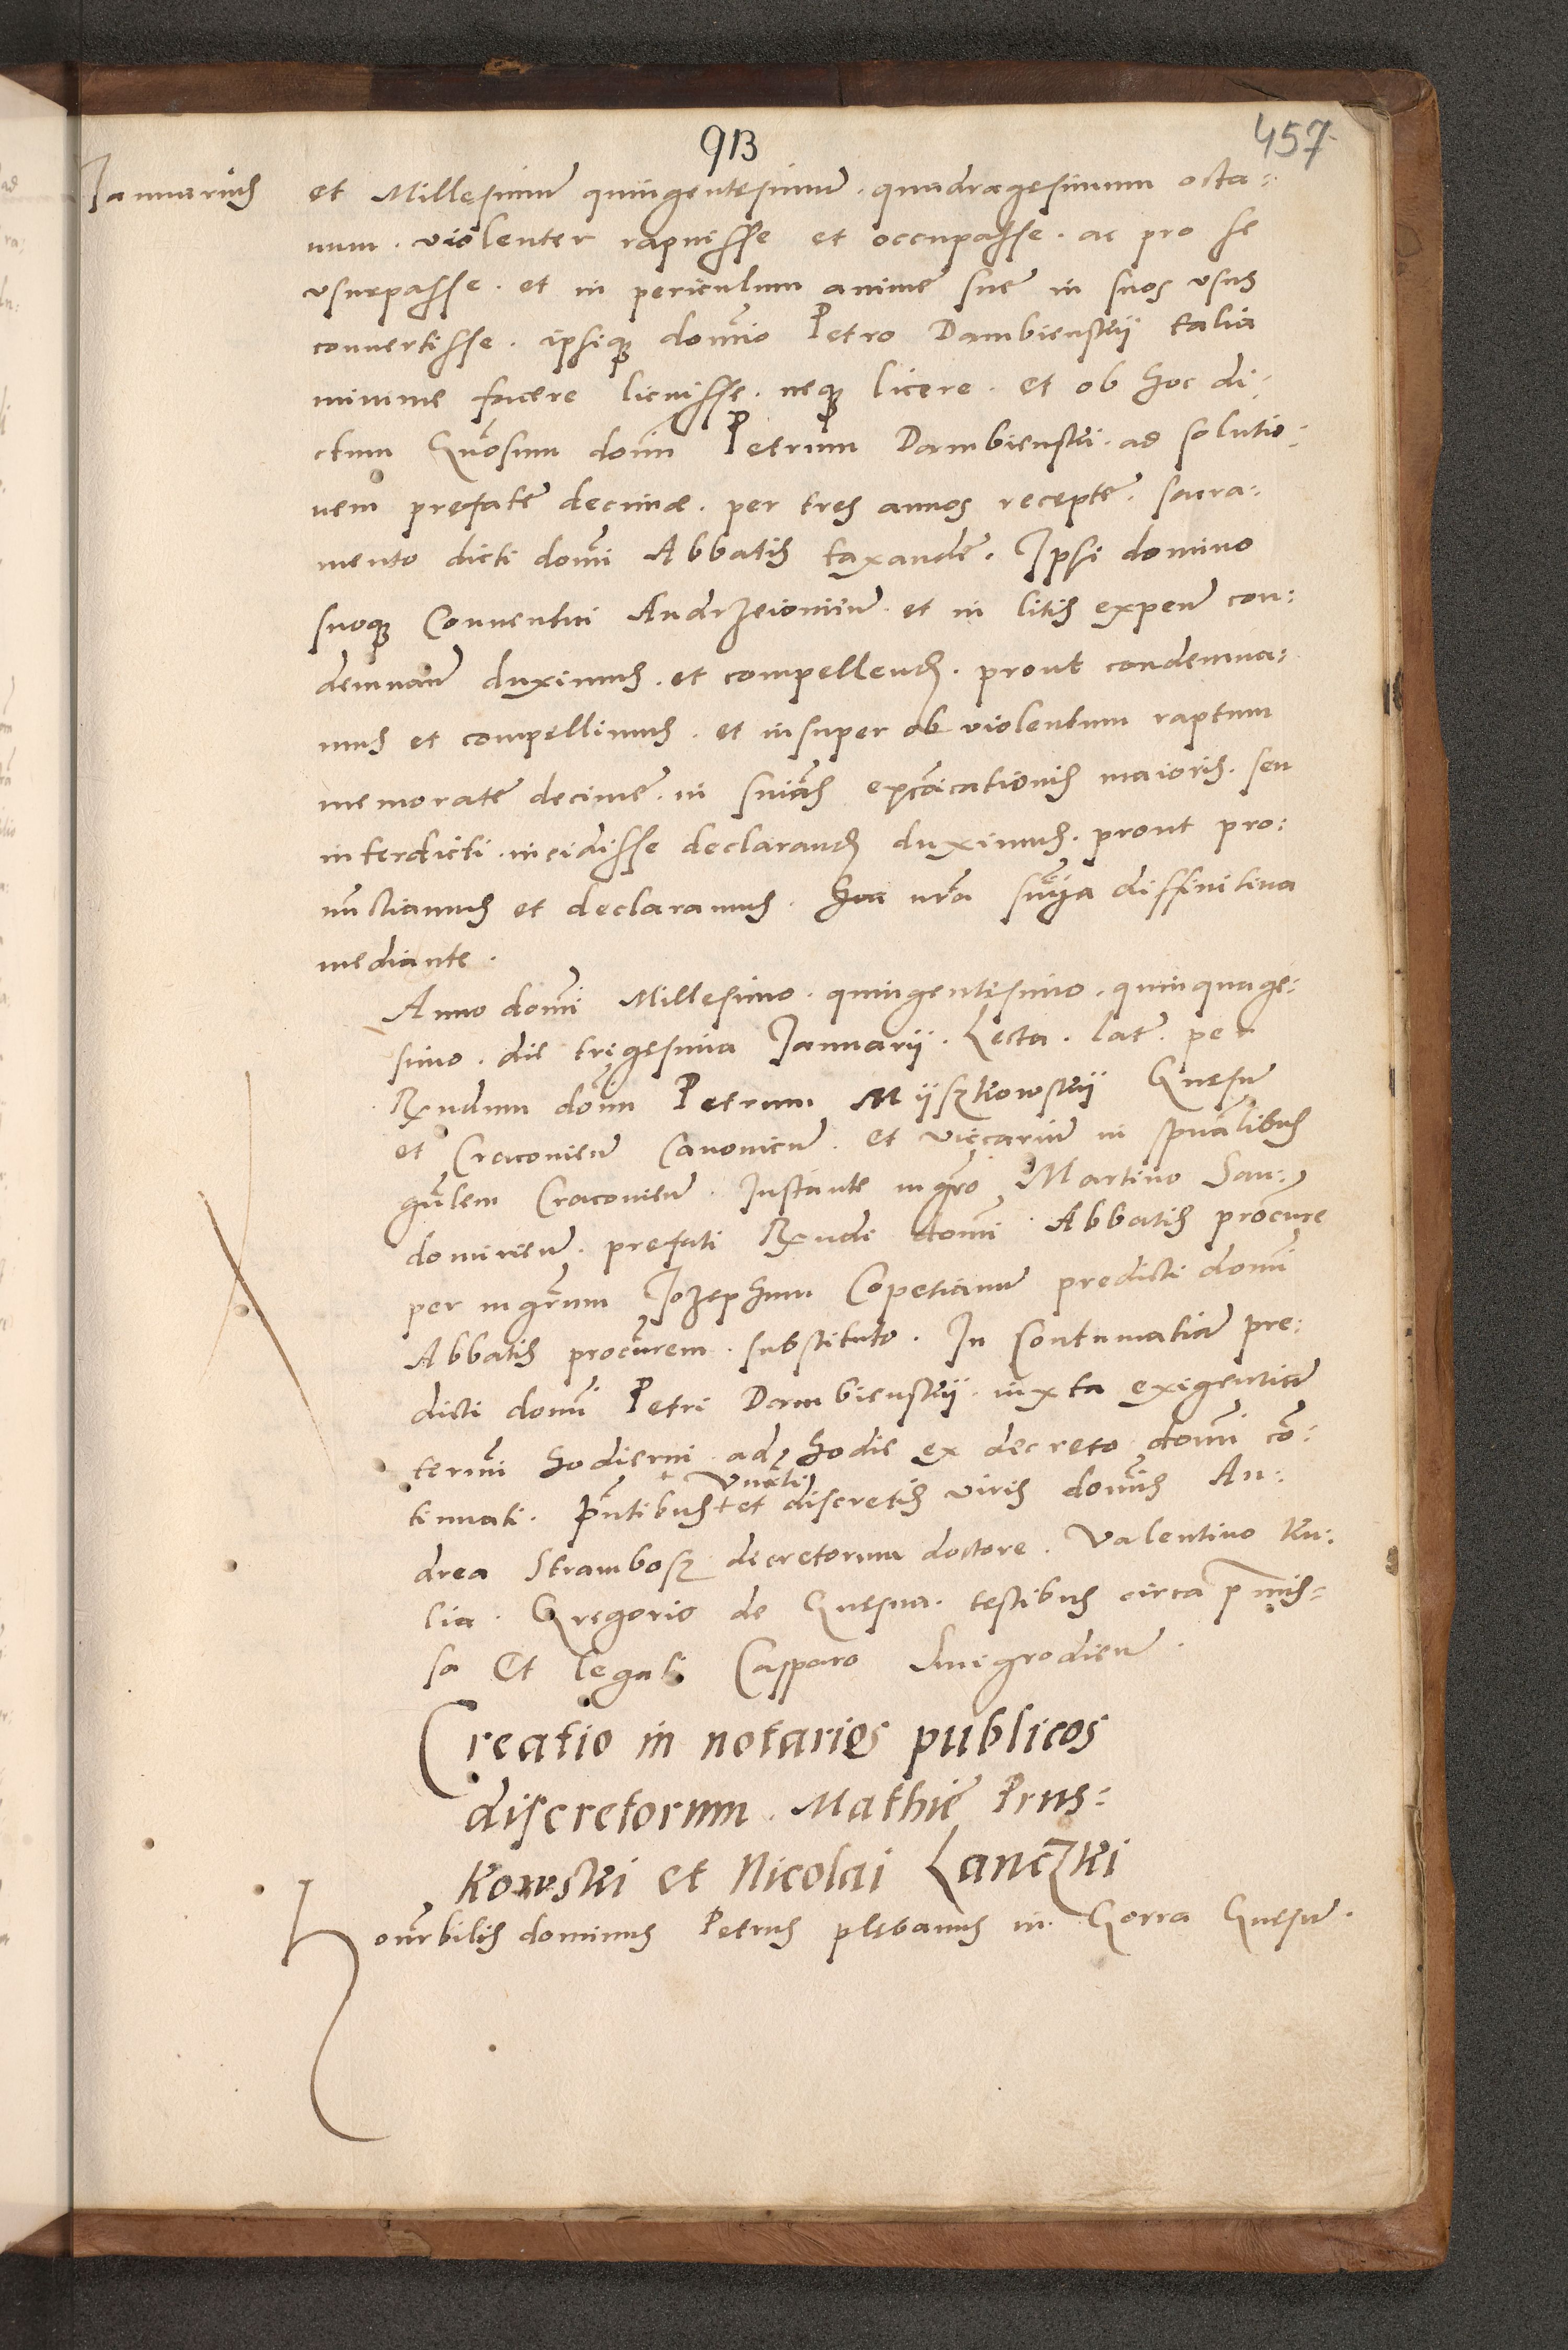 913
457
Januarius
et Millesimū quingentesimū. quadragesimum octa:
uum. violenter rapuisse et occupasse. ac pro se
vsurpasse. et in periculum animę suę in suos vsus
conuertisse. ipsiqꝫ dom̄io Petro Dambienskij talia
minime facere licuisse. neqꝫ licere. et ob hoc di:
ctum Gn̄osum dom̄ Petrum Dambienski. ad solutio:
nem prefatę decimæ. per tres annos receptę. sacra:
mento dicti dom̄i Abbatis taxandę. Ipsi domino
suoqꝫ Conuentui Andrzeiouień. et in litis expeń con:
demnań duximus. et compellend. prout condemna:
mus et compellimus. et insuper ob violentum raptum
memoratę decimę. in sn̄iās excōicationis maioris. seu
interdicti. incidisse declarand duximus. prout pro:
nūctiamus et declaramus. Hac nr̄a sn̄ia diffinitiua
mediante.
Anno dom̄i Millesimo. quingentesimo. quinquage:
simo. die trigesima Januarij. Lecta. latę. per
Rn̄dum dom̄ Petrum Mijszkowskij Gnesń
et Cracouień Canonicū. et vicarium in spūalibus
gn̄lem Cracouień. Instante mgr̄o Martino San:
domirień. prefati Rn̄di dom̄i Abbatis procūre
per mgr̄um Jozephum Copetianū predicti dom̄i
Abbatis procūrem. substituto. In Contumatiā pre:
dicti dom̄i Petri Dambienskij. iuxta exigentiā
term̄i hodierni. ad hodie ex decreto dom̄i cō:
tinuati. Pn̄tibus + et discretis viris dom̄is An:
+ Vn̄erli
drea Strambosz decretorum doctore. Valentino Ku:
lia. Gregorio de Gnesna. testibus circa p̄mis:
sa Et legali Casparo Smigrodień.
Creatio in notarios publicos
discretorum. Mathię Prus:
kowski et Nicolai Lanczki
Honr̄bilis dominus Petrus plebanus in Gorra Gnesń.